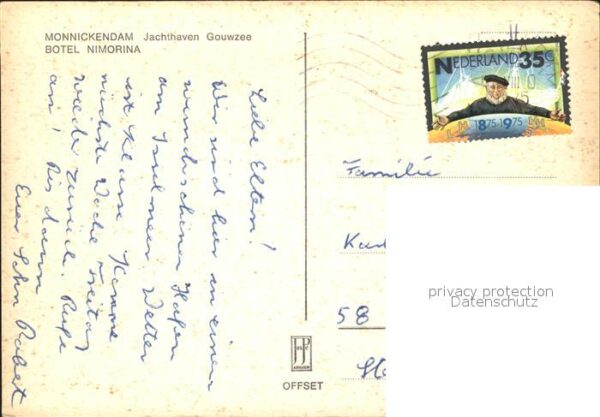 MONNICKENDAM Jachthaven Gouwzee
BOTEL NIMORINA
Liebe Eltern!
Wir sind hier in einem
wunderschönen Hafen
am Isselmeer. Wetter
ist Klasse. Komme
nächste Woche Freitag
wieder zurück. Rufe
an! Bis dann
Euer Sohn Robert
NEDERLAND 35c
1875-1975
Familie
58
privacy protection
Datenschutz
OFFSET